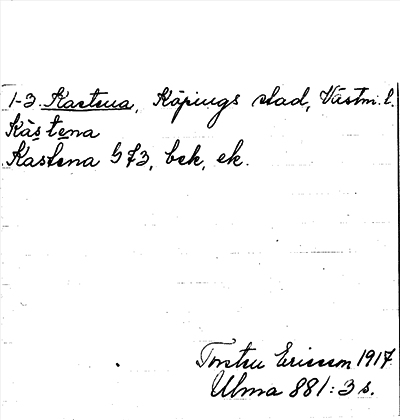 1-3. Kastena, Köpings stad, Västm. l.
Kàstena
Kastena G f3, bek, ek.
Torsten Ericsson 1917
Ulma 881:3 s.